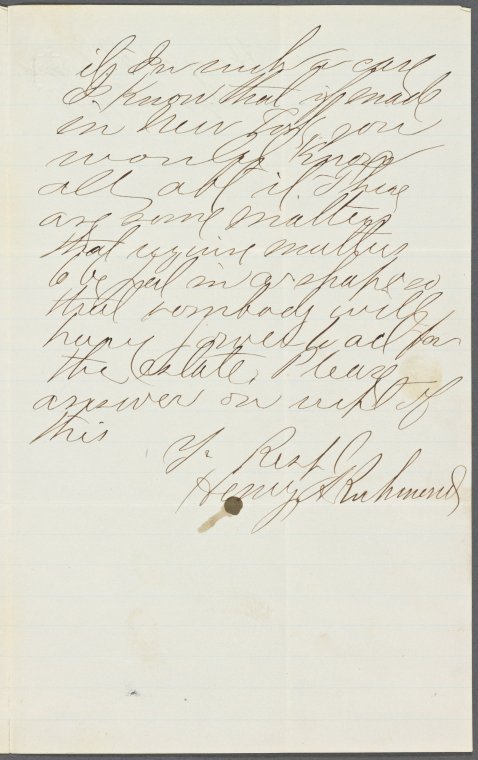 it, In such a case
I know that if made
in New York you
would know
all abt it There
are some matters
that require matters
be put in a shape so
that sombody will
have power to act for
the Estate. Please
answer on recpt of
this
Yr Resp
Henry A Richmond